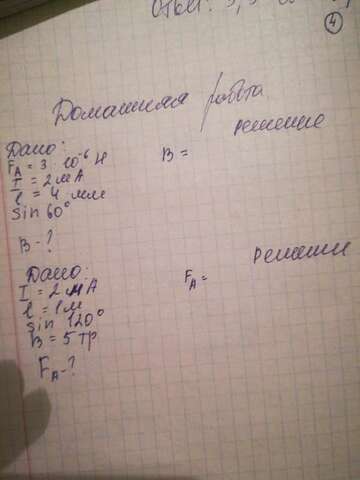 Ответ: 3,3
4
Домашняя работа
Дано: решение
F_A = 3 · 10⁻⁶ Н B =
I = 2 мА
l = 4 мм
sin 60°
B - ?
Дано: решение
I = 2 мА F_A =
l = 1 м
sin 120°
B = 5 Тр
F_A - ?